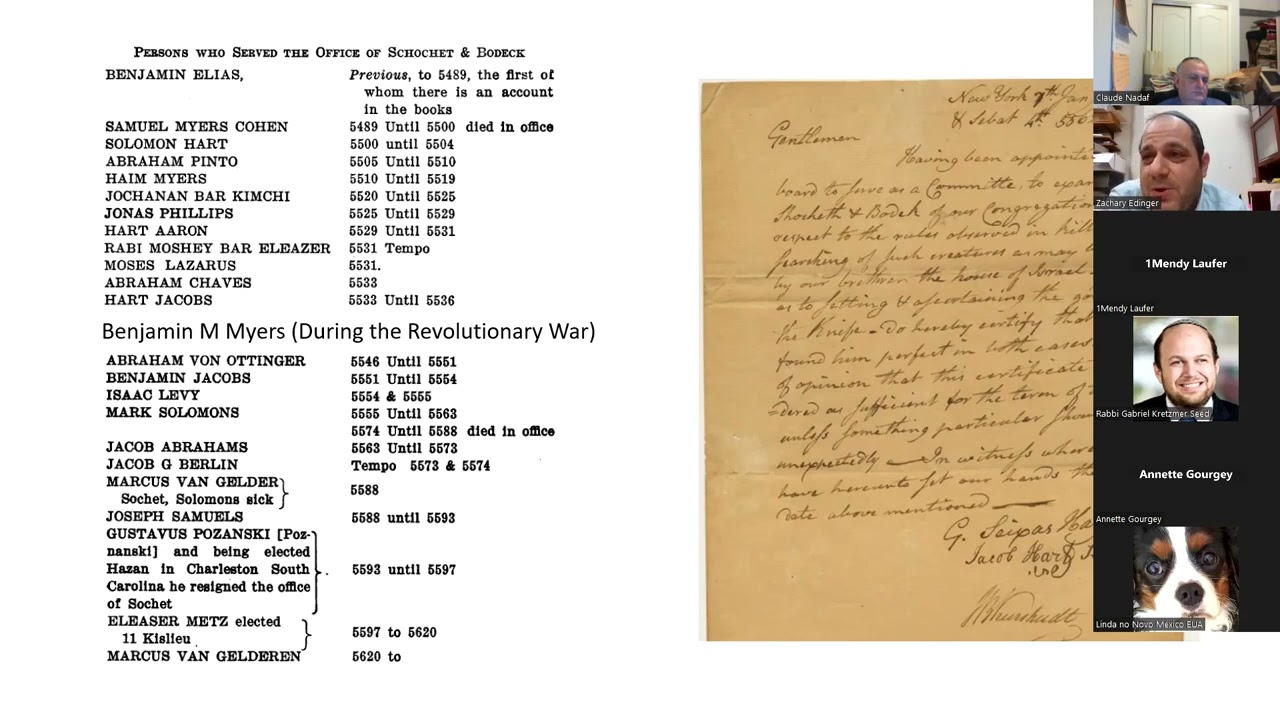 PERSONS WHO SERVED THE OFFICE OF SCHOCHET & BODECK
BENJAMIN ELIAS, Previous, to 5489, the first of
whom there is an account
in the books
SAMUEL MYERS COHEN 5489 Until 5500 died in office
SOLOMON HART 5500 until 5504
ABRAHAM PINTO 5505 Until 5510
HAIM MYERS 5510 Until 5519
JOCHANAN BAR KIMCHI 5520 Until 5525
JONAS PHILLIPS 5525 Until 5529
HART AARON 5529 Until 5531
RABI MOSHEY BAR ELEAZER 5531 Tempo
MOSES LAZARUS 5531.
ABRAHAM CHAVES 5533
HART JACOBS 5533 Until 5536
Benjamin M Myers (During the Revolutionary War)
ABRAHAM VON OTTINGER 5546 Until 5551
BENJAMIN JACOBS 5551 Until 5554
ISAAC LEVY 5554 & 5555
MARK SOLOMONS 5555 Until 5563
5574 Until 5588 died in office
JACOB ABRAHAMS 5563 Until 5573
JACOB G BERLIN Tempo 5573 & 5574
MARCUS VAN GELDER
Sochet, Solomons sick 5588
JOSEPH SAMUELS 5588 until 5593
GUSTAVUS POZANSKI [Poz-
nanski] and being elected
Hazan in Charleston South 5593 until 5597
Carolina he resigned the office
of Sochet
ELEASER METZ elected
11 Kislieu 5597 to 5620
MARCUS VAN GELDEREN 5620 to
New York 7th Jan
& Sebat 4th
Gentlemen
Having been appointe
board to serve as a Committe, to exam
Shocheth & Bodek of our Congregation
respect to the rules observed in kill
searching of such creatures as may b
by our brethren the house of Israel
as to setting & ascertaining the go
the Knife - Do hereby certify that
found him perfect in both cases
of opinion that this certificate
=dered as sufficient for the term of
unless something particular shou
unexpectedly In witness where
have hereunto set our hands th
date above mentioned
G. Seixas Ha
Jacob Hart
Claude Nadaf
Zachary Edinger
1Mendy Laufer
1Mendy Laufer
Rabbi Gabriel Kretzmer Seed
Annette Gourgey
Annette Gourgey
Linda no Novo México EUA